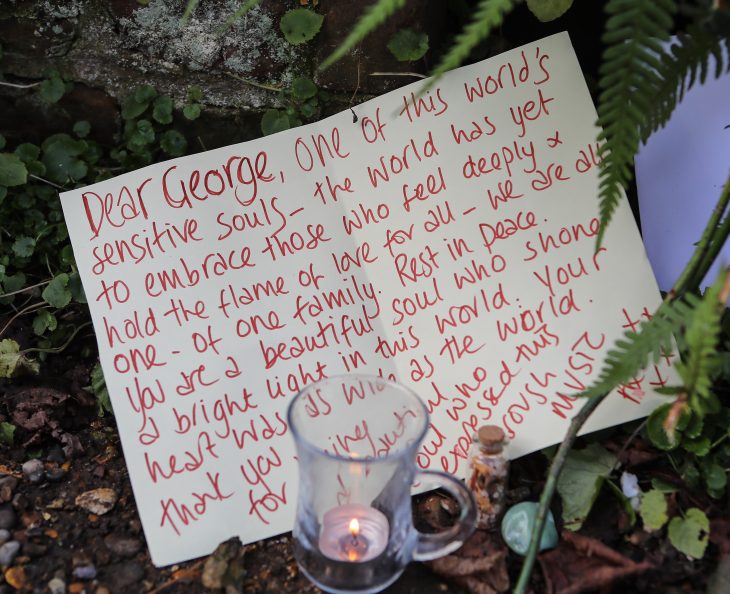 Dear George, One of this world's
sensitive souls - the world has yet
to embrace those who feel deeply &
hold the flame of love for all - we are all
one - of one family. Rest in peace.
You are a beautiful soul who shone
a bright light in this world. Your
heart was as wide as the world.
Thank you
for soul who expressed this
through MUSIC